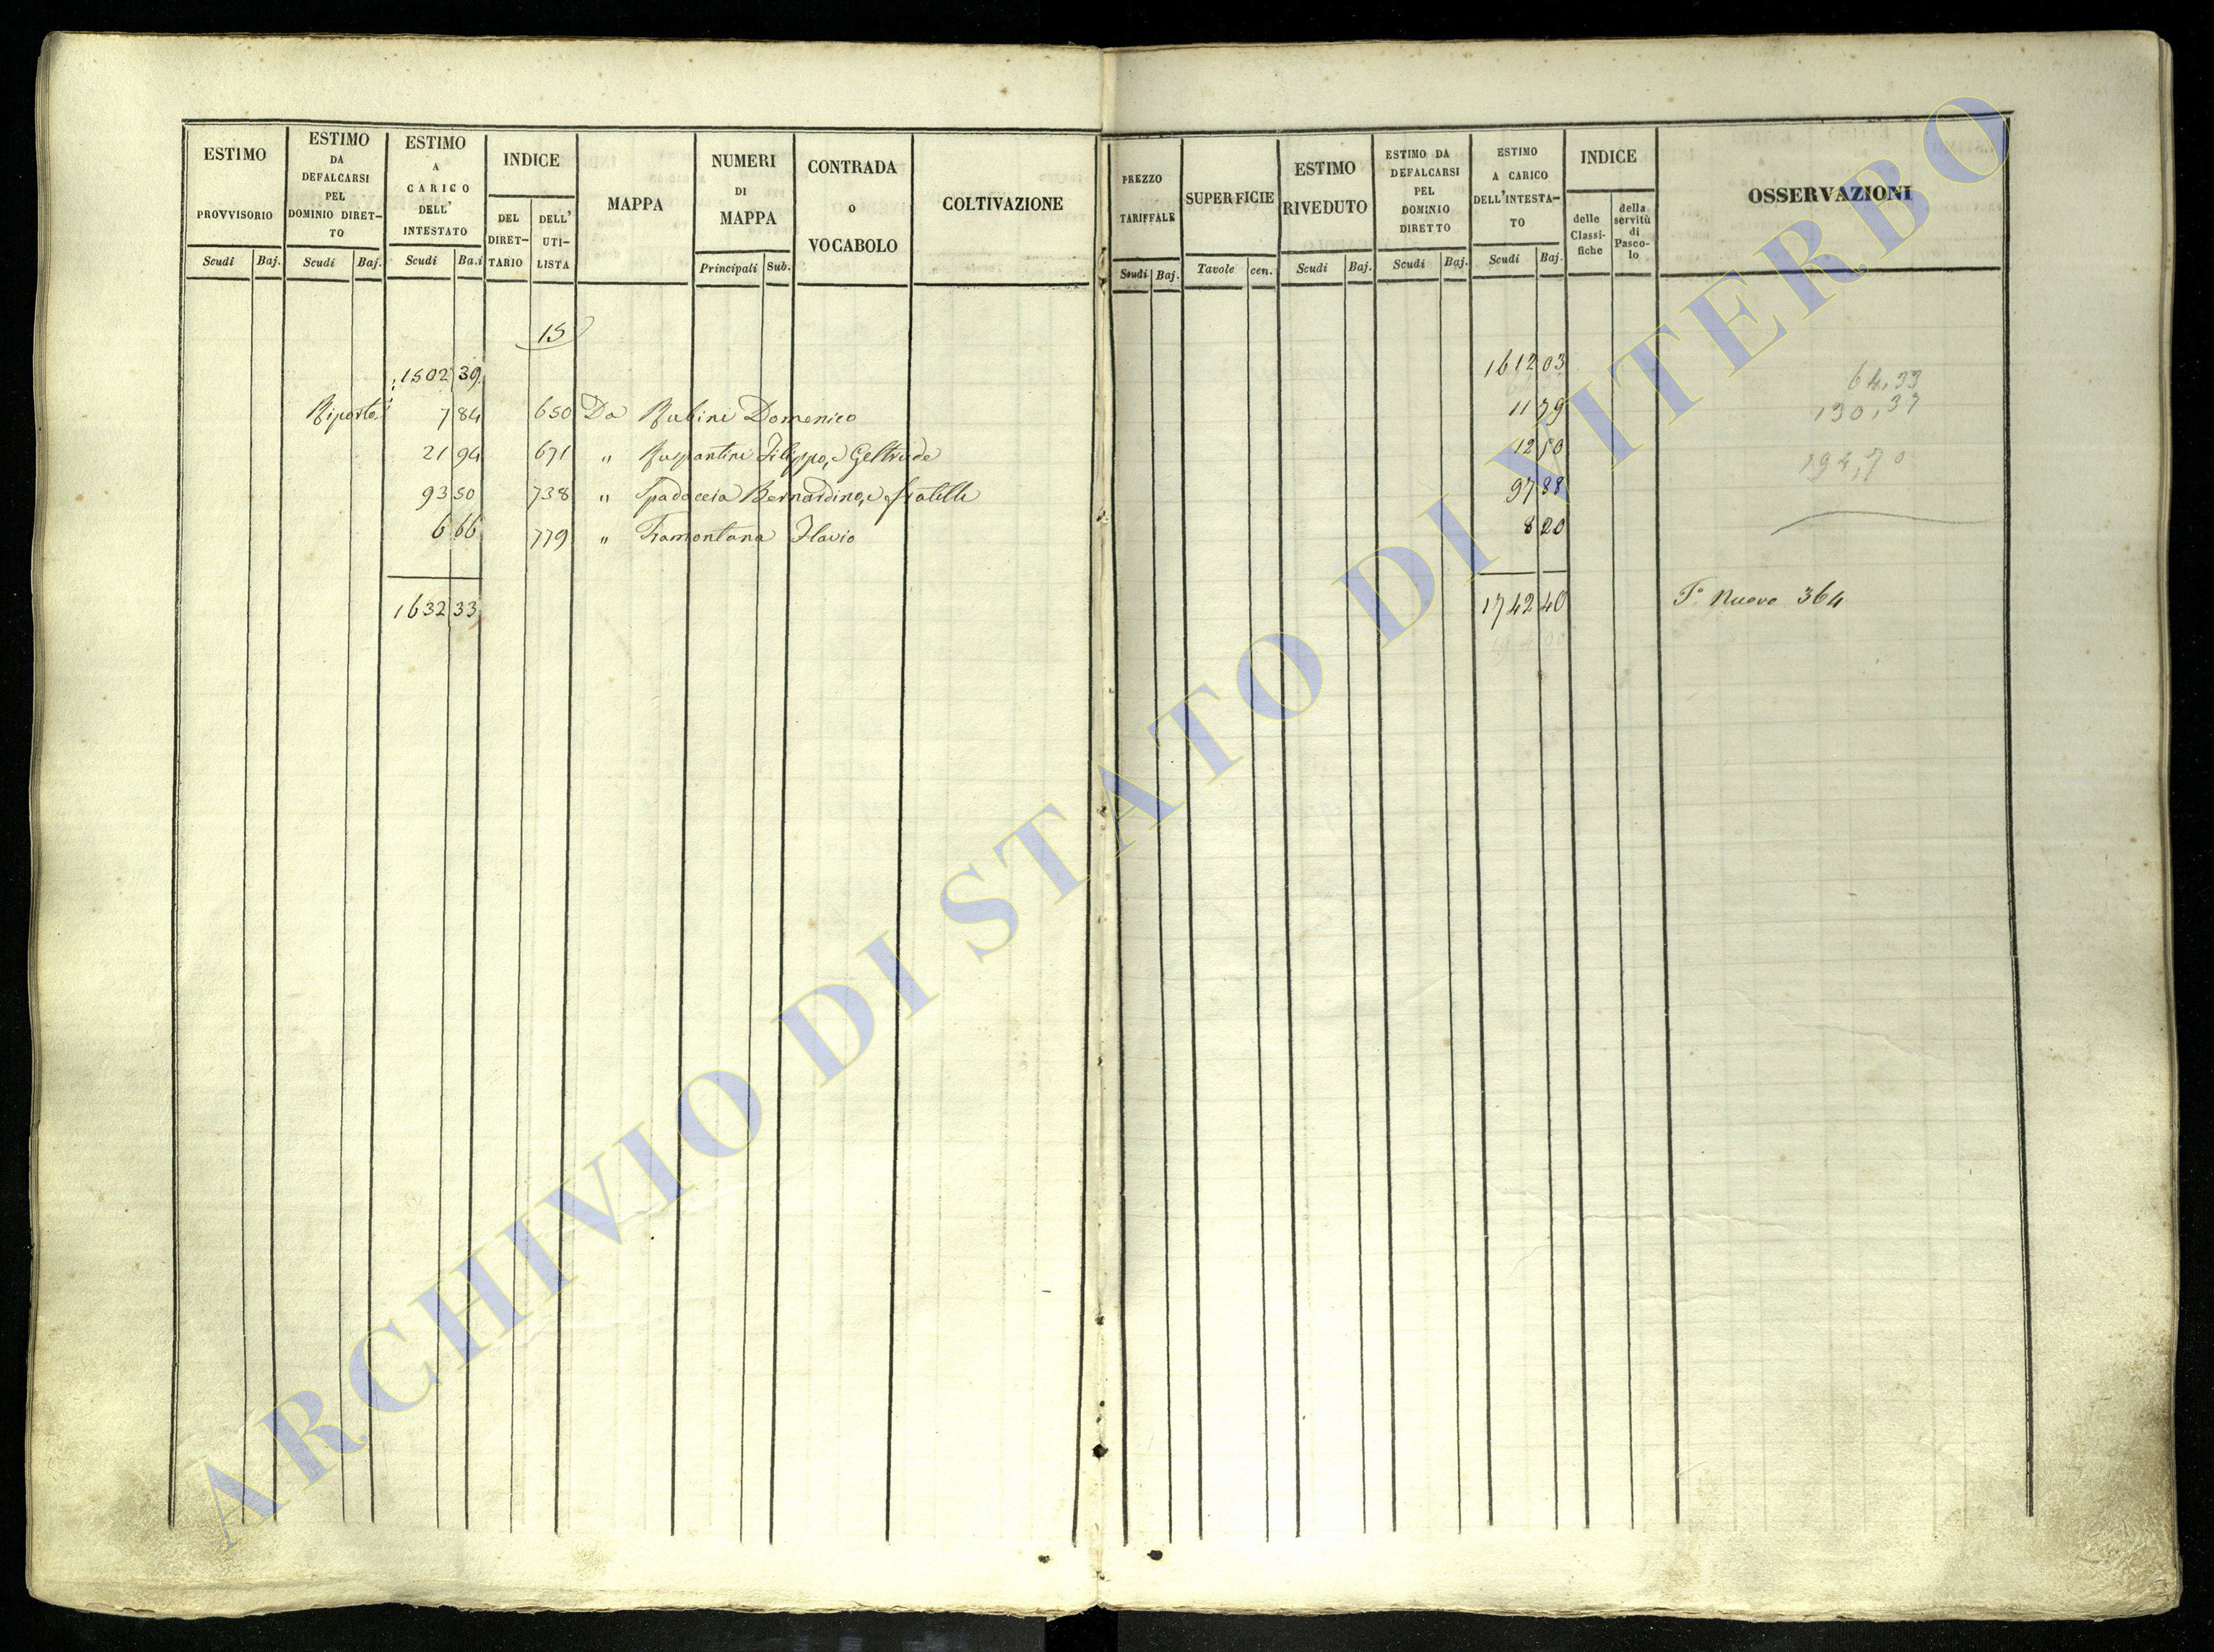 ESTIMO PROVVISORIO Scudi Baj.
ESTIMO DA DEFALCARSI PEL DOMINIO DIRET-TO Scudi Baj.
ESTIMO A CARICO DELL' INTESTATO Scudi Ba.i
INDICE DEL DIRET-TARIO DELL' UTI-LISTA
MAPPA
NUMERI DI MAPPA Principali Sub.
CONTRADA O VOCABOLO
COLTIVAZIONE
PREZZO TARIFFALE Scudi Baj.
SUPERFICIE Tavole cen.
ESTIMO RIVEDUTO Scudi Baj.
ESTIMO DA DEFALCARSI PEL DOMINIO DIRETTO Scudi Baj.
ESTIMO A CARICO DELL'INTESTA-TO Scudi Baj.
INDICE delle Classi-fiche della servitù di Pasco-lo
OSSERVAZIONI
15
1502 39 1612 03 64,33
Riporto 7 84 650 Da Rubini Domenico 11 79 130,37
21 94 671 " Ruspantini Filippo, e Geltrude 12 50 194,70
93 50 738 " Spadaccia Bernardino, e fratelli 97 88
6 66 779 " Tramontana Flavio 8 20
1632 33 1742 40 F.° Nuovo 364
ARCHIVIO DI STATO DI VITERBO